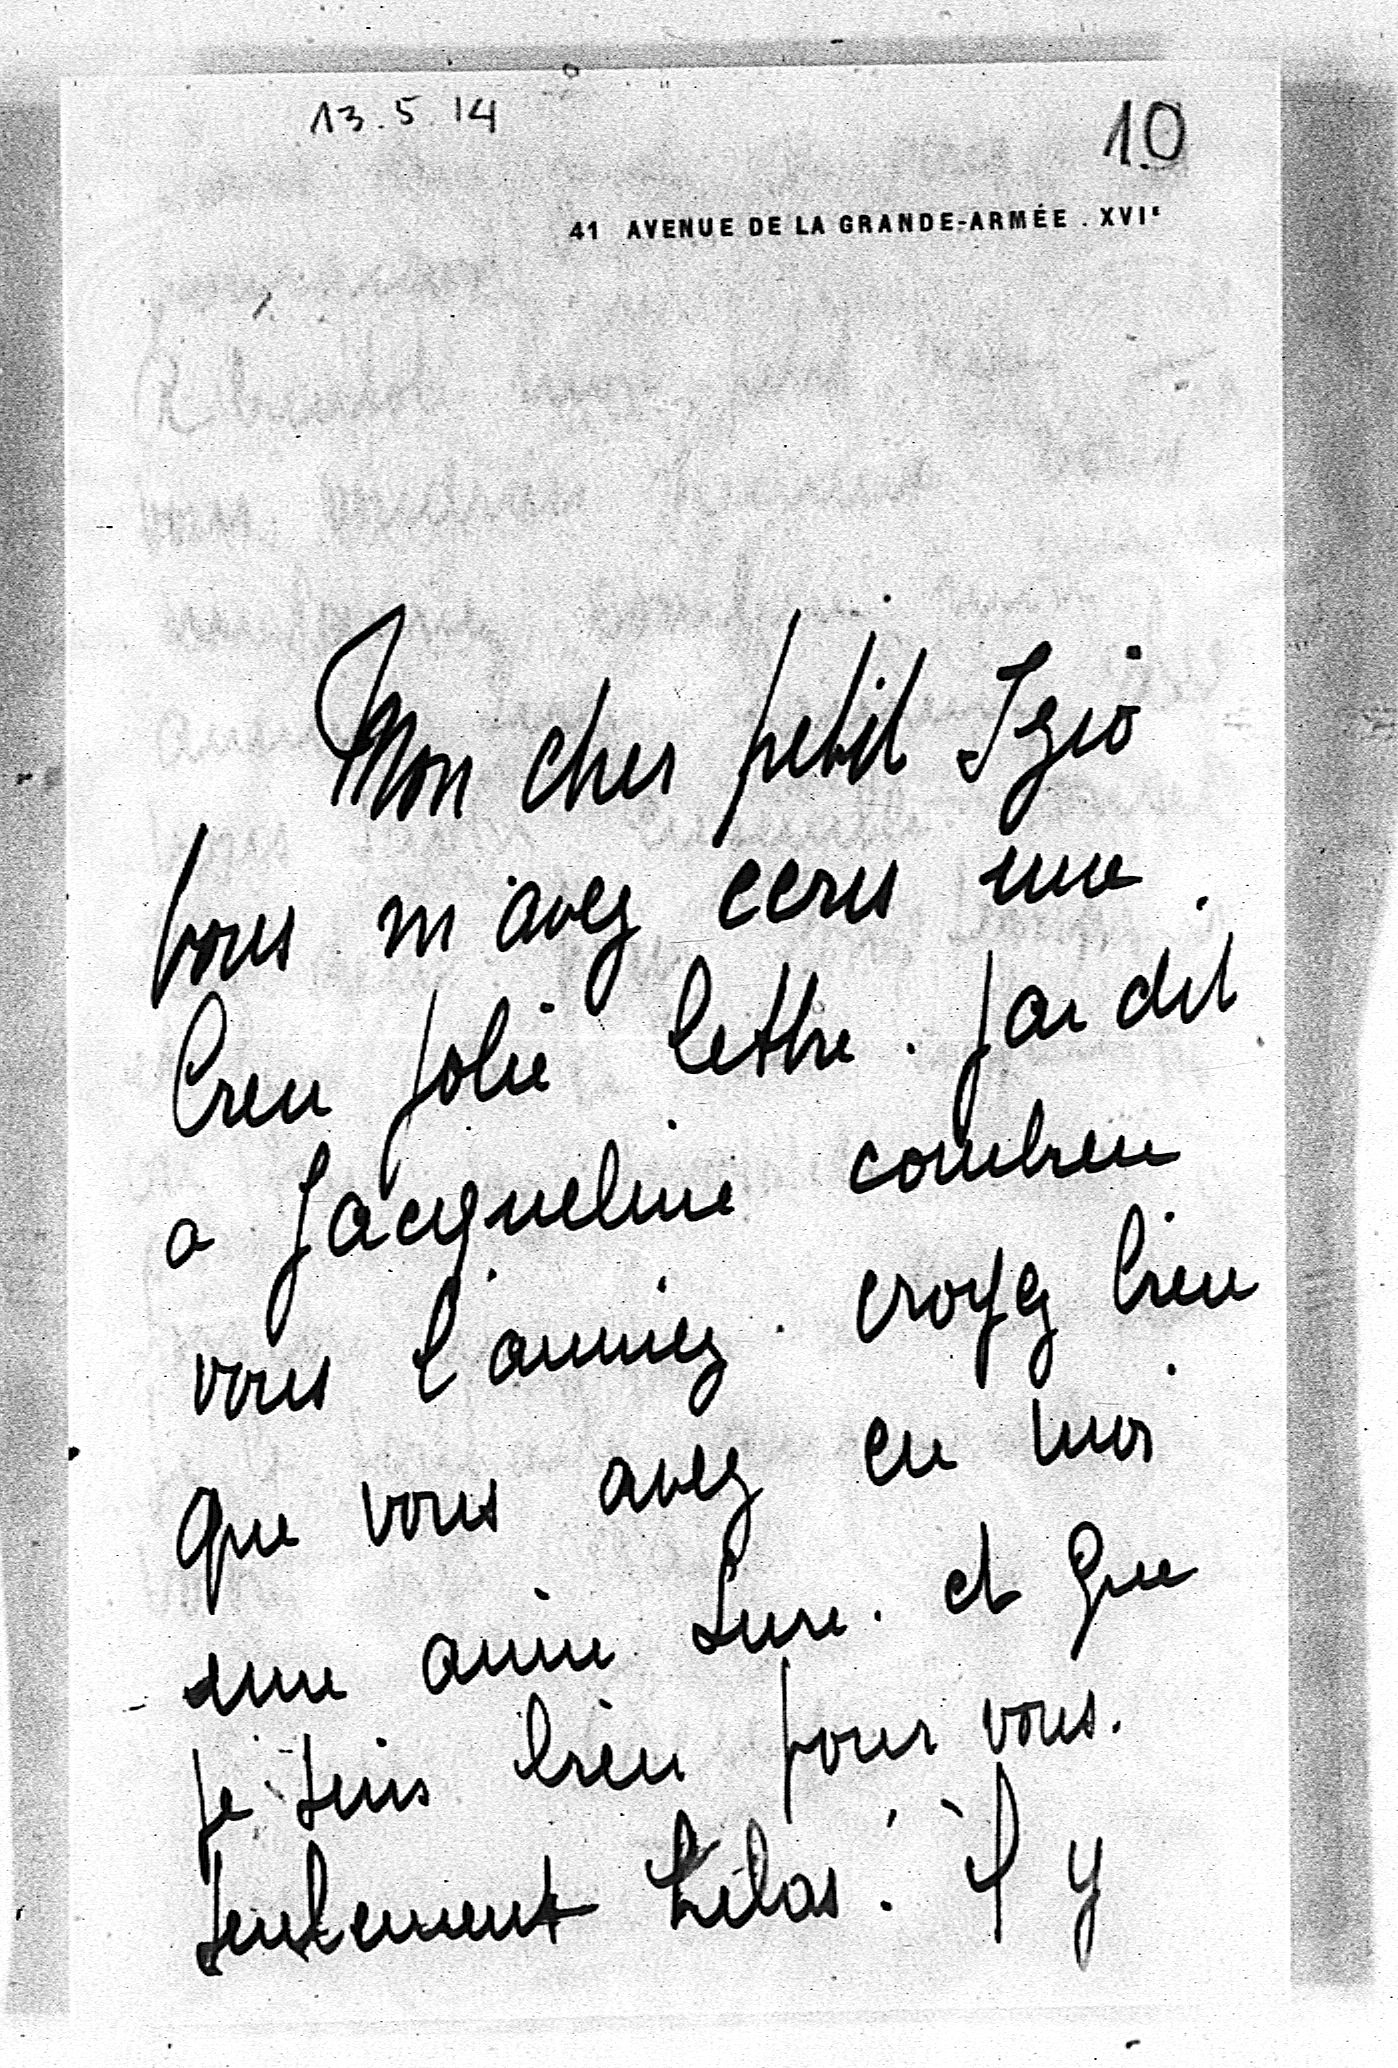 13.5.14
10
41 AVENUE DE LA GRANDE-ARMÉE . XVIe
Mon cher petit Izio
vous m'avez ecris une
bien jolie lettre. j'ai dit
a Jacqueline combien
vous l'aimiez. croyez bien
que vous avez en moi
une amie sure. et que
je suis bien pour vous.
seulement hélas! il y